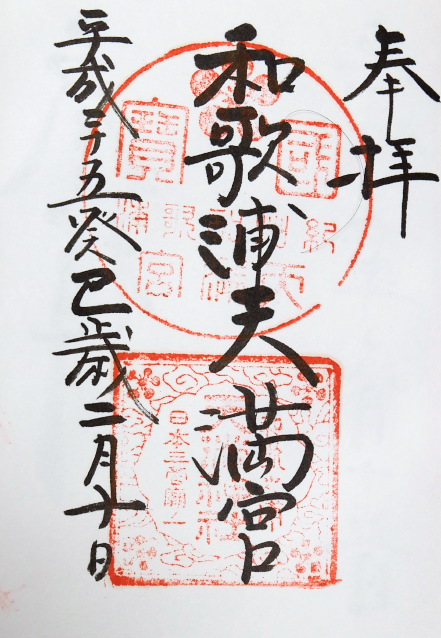 奉拝
和歌浦天満宮
平成二十五癸巳歳二月十日
國
寶
日本三菅廟一